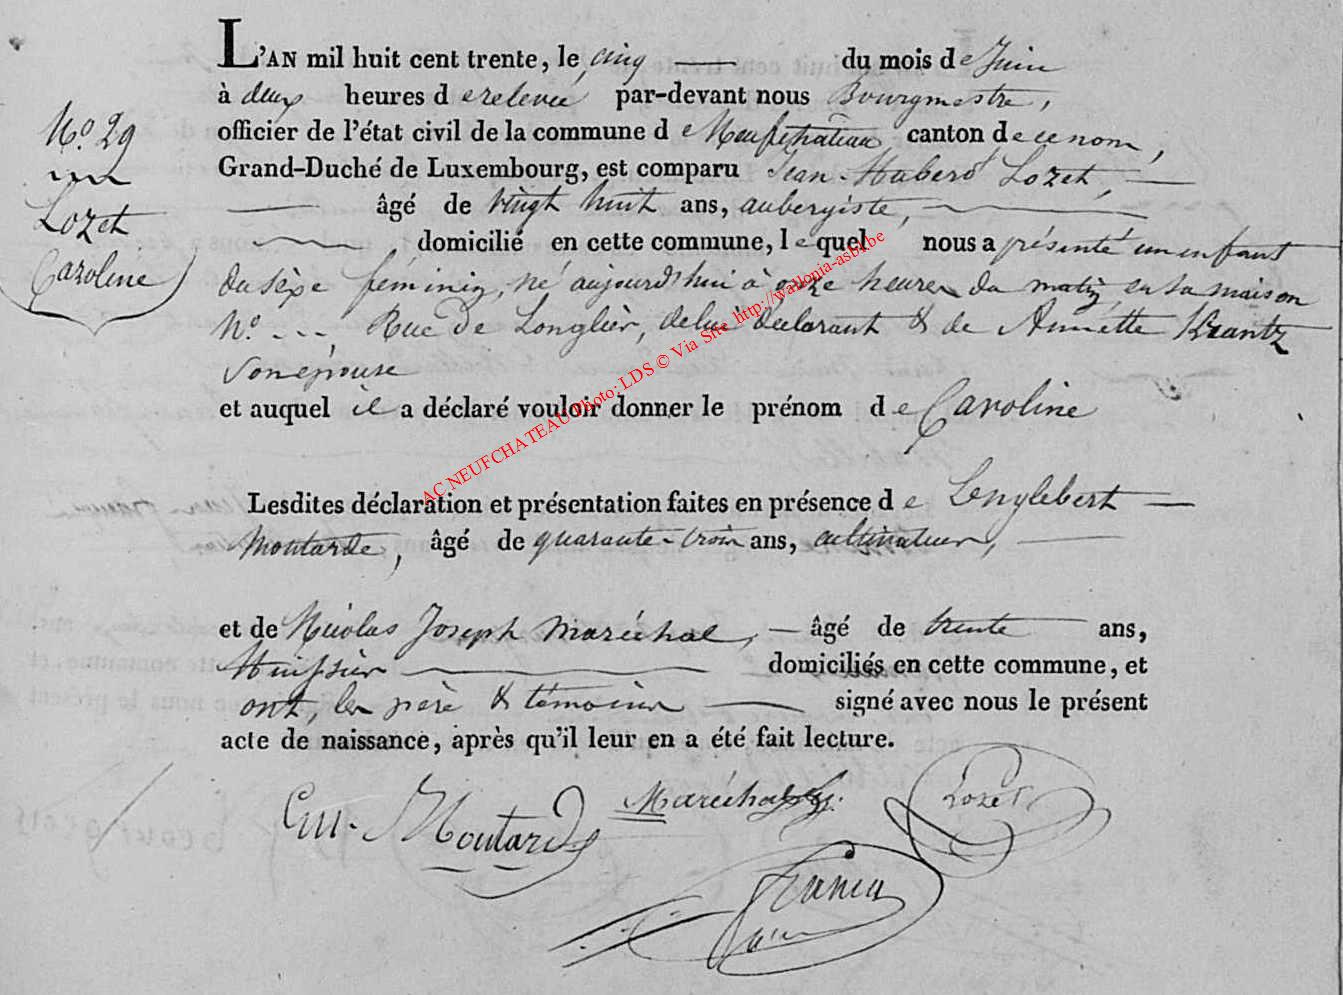 N.o 29
Lozet
Caroline
L'AN mil huit cent trente, le cinq du mois de Juin
à deux heures de relevée par-devant nous Bourgmestre,
officier de l'état civil de la commune de Neufchateau canton de ce nom,
Grand-Duché de Luxembourg, est comparu Jean-Hubert Lozet,
âgé de vingt huit ans, aubergiste,
domicilié en cette commune, lequel nous a présenté un enfant
du sexe féminin, né aujourd'hui à onze heures du matin en sa maison
N.o - - -, Rue de Longlier, de lui déclarant & de Annette Krantz
son épouse
et auquel il a déclaré vouloir donner le prénom de Caroline
Lesdites déclaration et présentation faites en présence de Lenglebert
Moutarde, âgé de quarante-trois ans, cultivateur,
et de Nicolas Joseph Maréchal, âgé de trente ans,
Huissier domiciliés en cette commune, et
ont, les père & témoins signé avec nous le présent
acte de naissance, après qu'il leur en a été fait lecture.
Moutarde
Maréchal
Lozet
AC NEUFCHATEAU Photo: LDS © Via Site http://wallonia-asbl.be